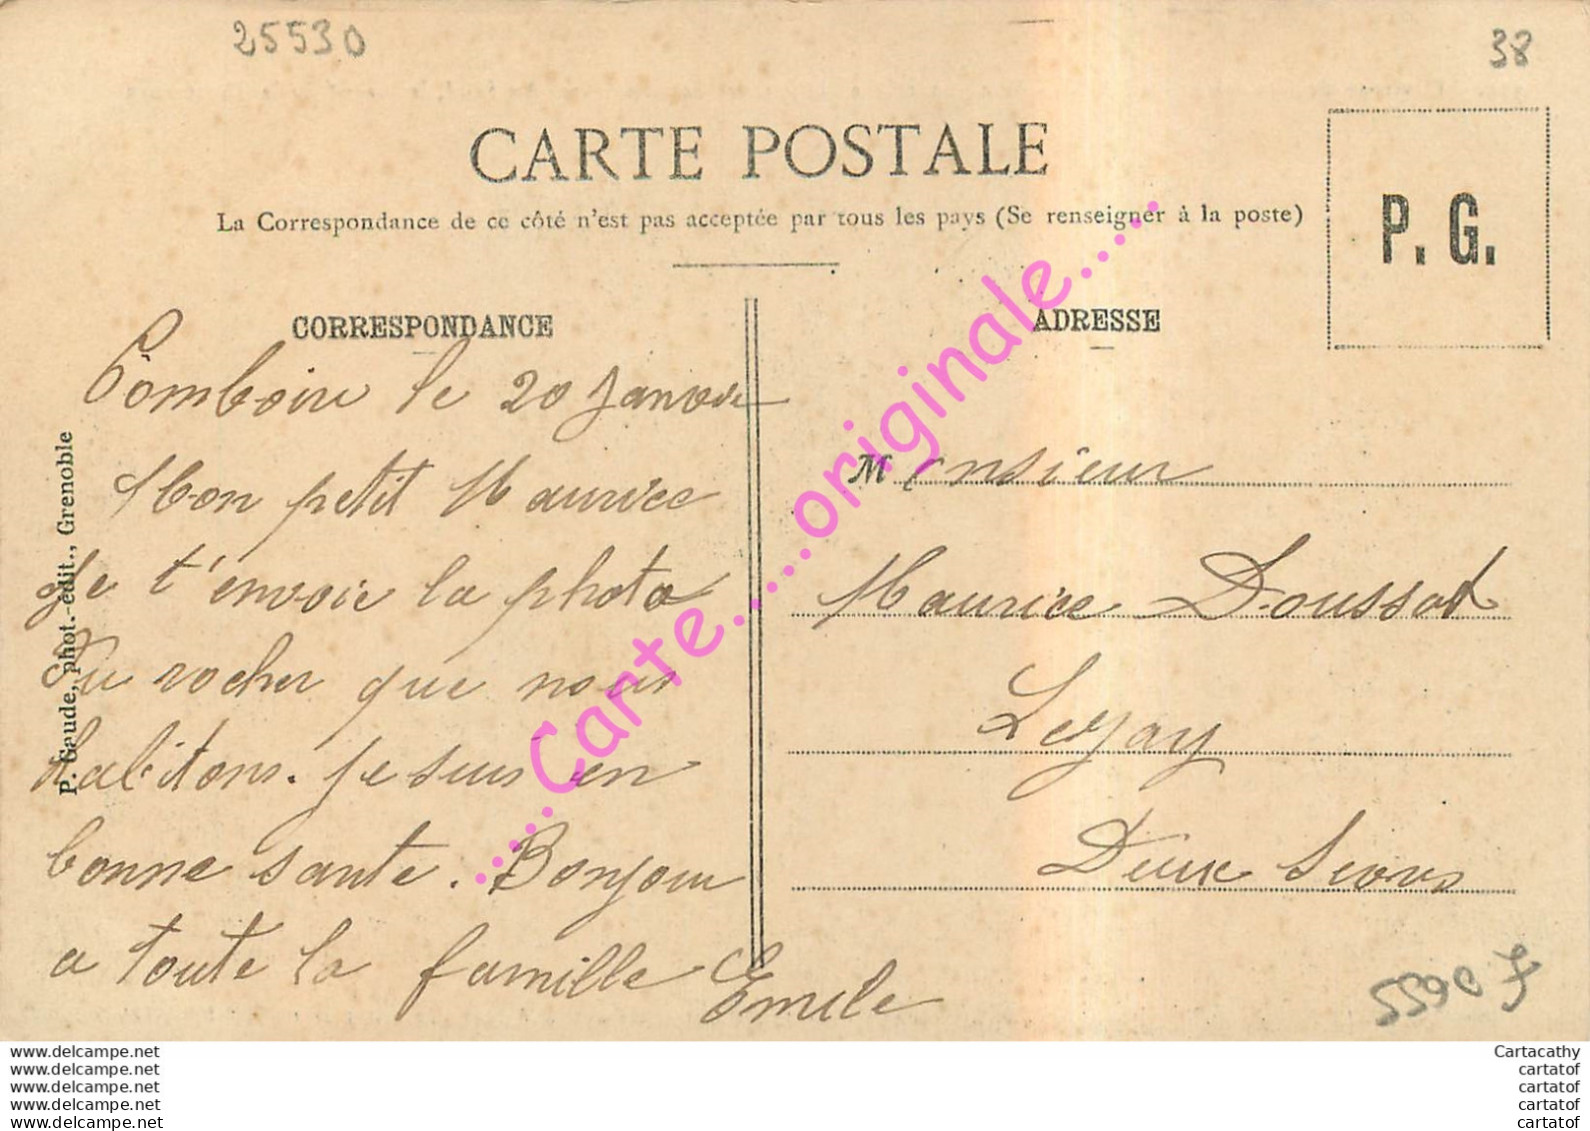 25530
38
CARTE POSTALE
La Correspondance de ce côté n'est pas acceptée par tous les pays (Se renseigner à la poste)
P. G.
CORRESPONDANCE
Comboire le 20 Janvier
Mon petit Maurice
Je t'envoie la photo
Du rocher que nous
habitons. Je suis en
bonne sante. Bonjour
a toute la famille Emile
P. Gaude, phot.-édit., Grenoble
ADRESSE
Monsieur
Maurice Doussot
Lezay
Deux Sevres
.....Carte.....originale.....
www.delcampe.net
www.delcampe.net
www.delcampe.net
www.delcampe.net
www.delcampe.net
Cartacathy
cartatof
cartatof
cartatof
cartatof